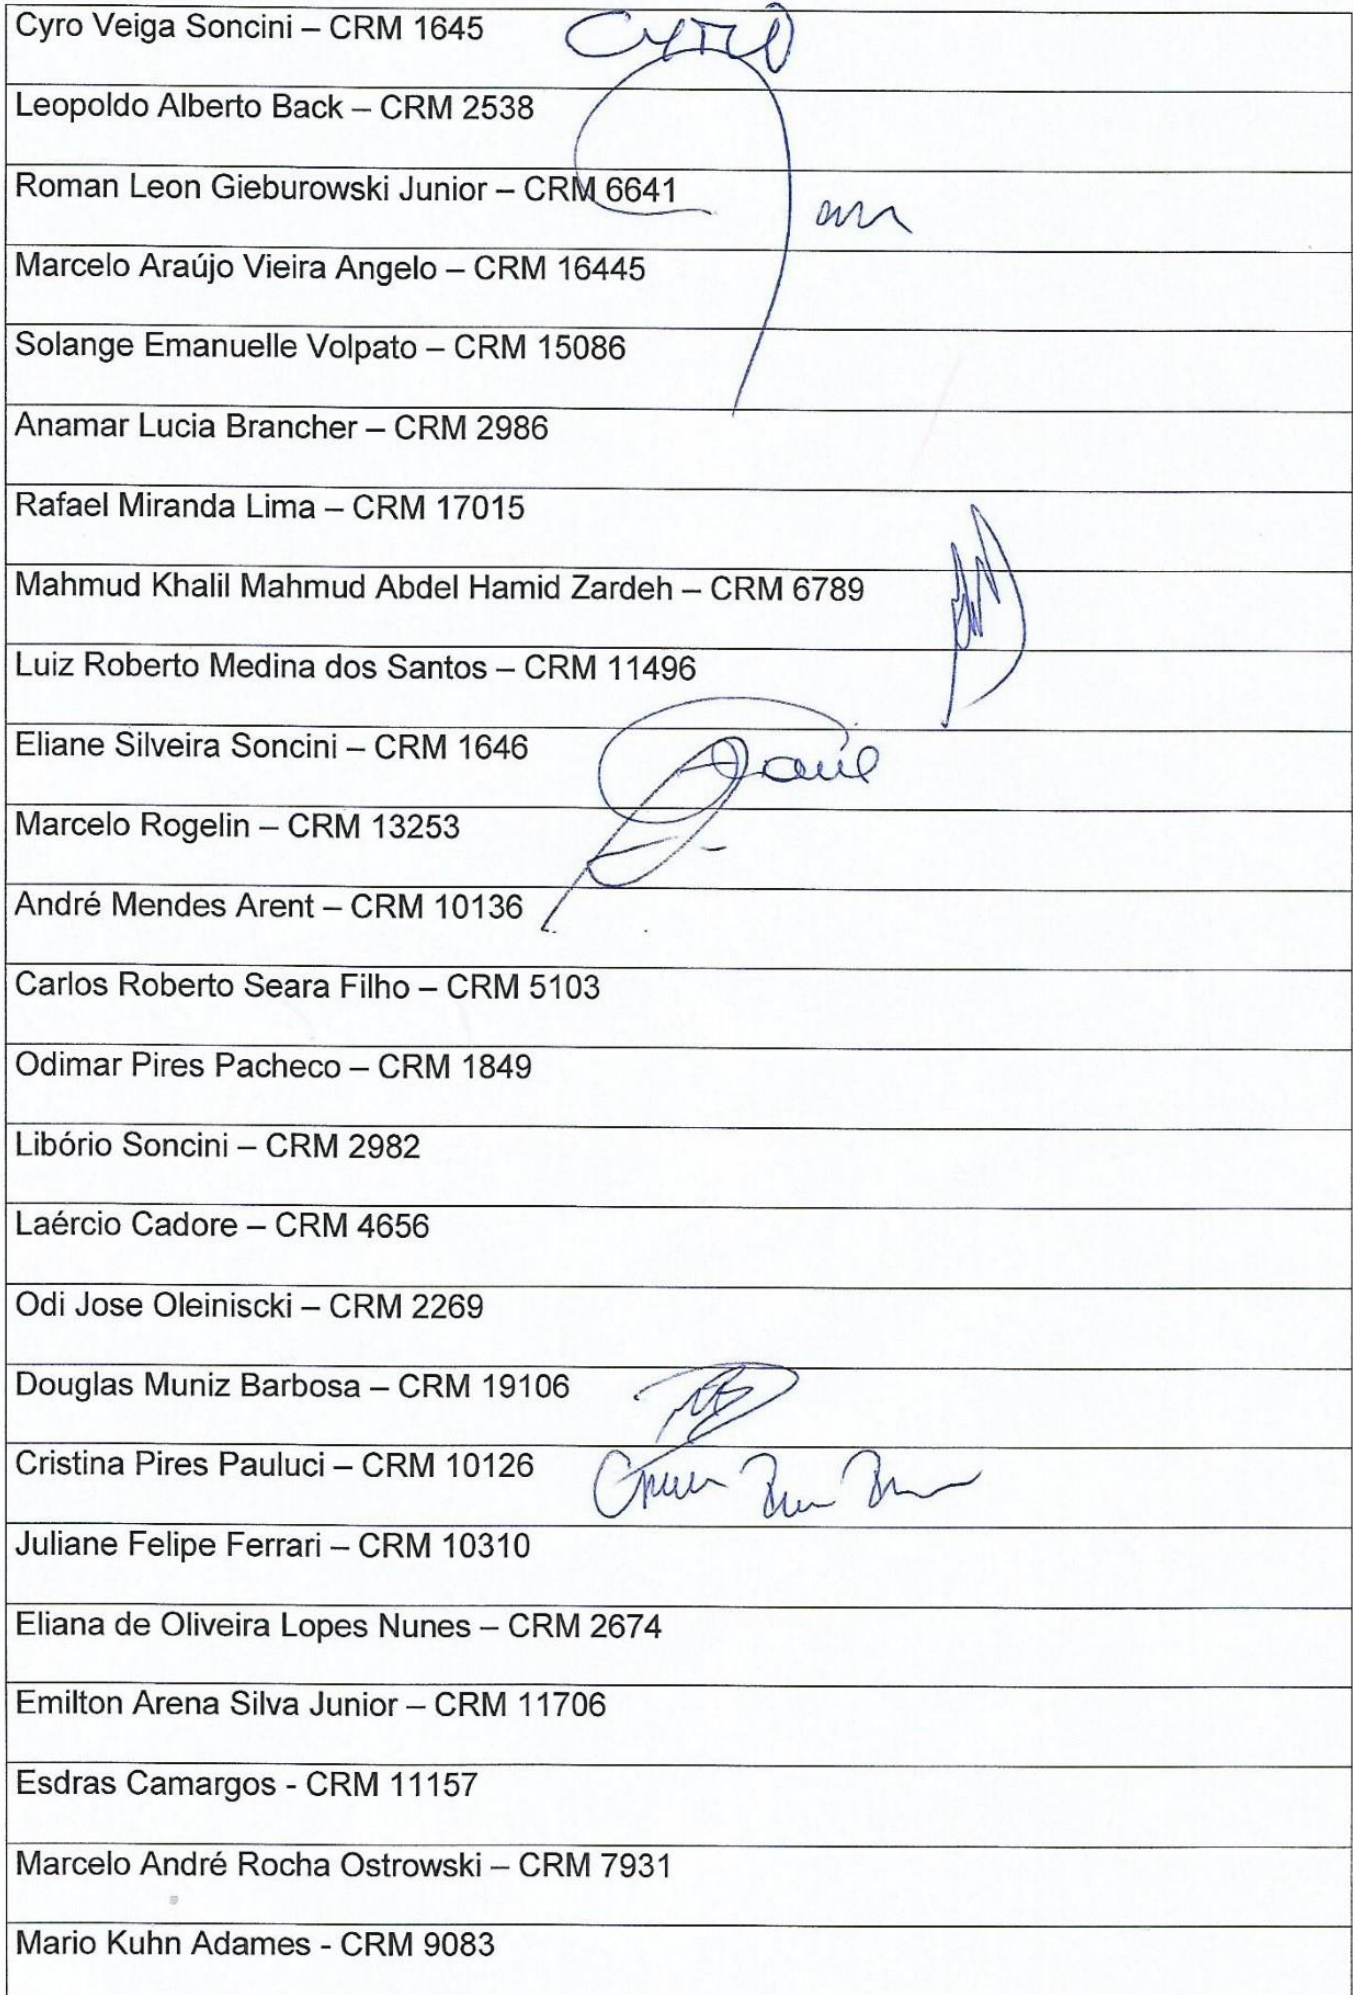 Cyro Veiga Soncini – CRM 1645 Cyro
Leopoldo Alberto Back – CRM 2538
Roman Leon Gieburowski Junior – CRM 6641
Marcelo Araújo Vieira Angelo – CRM 16445
Solange Emanuelle Volpato – CRM 15086
Anamar Lucia Brancher – CRM 2986
Rafael Miranda Lima – CRM 17015
Mahmud Khalil Mahmud Abdel Hamid Zardeh – CRM 6789
Luiz Roberto Medina dos Santos – CRM 11496
Eliane Silveira Soncini – CRM 1646
Marcelo Rogelin – CRM 13253
André Mendes Arent – CRM 10136
Carlos Roberto Seara Filho – CRM 5103
Odimar Pires Pacheco – CRM 1849
Libório Soncini – CRM 2982
Laércio Cadore – CRM 4656
Odi Jose Oleiniscki – CRM 2269
Douglas Muniz Barbosa – CRM 19106
Cristina Pires Pauluci – CRM 10126
Juliane Felipe Ferrari – CRM 10310
Eliana de Oliveira Lopes Nunes – CRM 2674
Emilton Arena Silva Junior – CRM 11706
Esdras Camargos - CRM 11157
Marcelo André Rocha Ostrowski – CRM 7931
Mario Kuhn Adames - CRM 9083